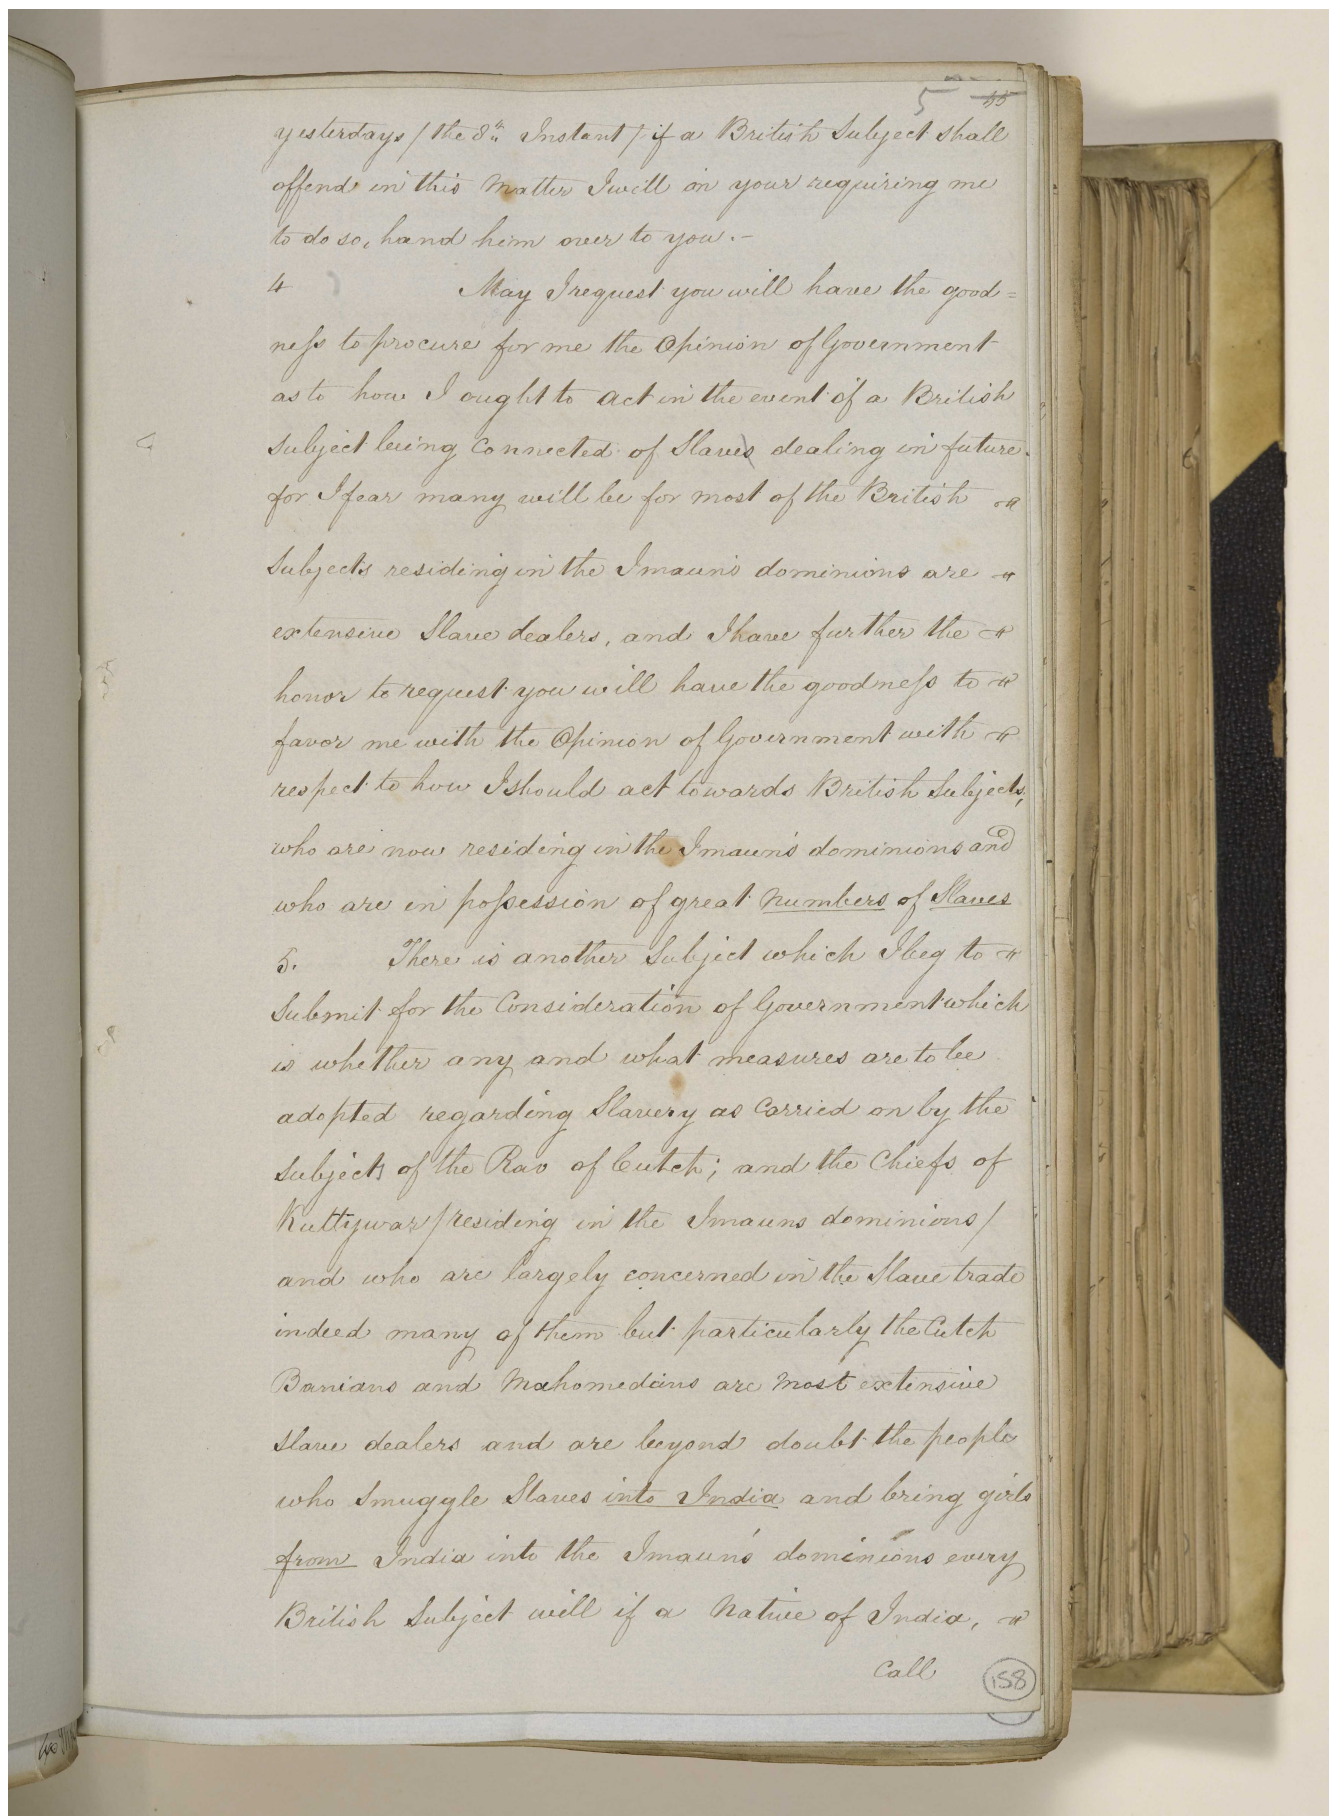 5 55
yesterdays / the 8th Instant / if a British Subject shall
offend in this Matter I will on your requiring me
to do so, hand him over to you.-
4 May I request you will have the good=
neſs to procure for me the Opinion of Government
as to how I ought to act in the event of a British
Subject being Connected of Slaves dealing in future.
for I fear many will be for most of the British
Subjects residing in the Imaun's dominions are
extensive Slave dealers, and I have further the
honor to request you will have the goodneſs to
favor me with the Opinion of Government with
respect to how I should act towards British Subjects,
who are now residing in the Imaun's dominions and
who are in poſsession of great numbers of Slaves
5. There is another Subject which I beg to
Submit for the Consideration of Government which
is whether any and what measures are to be
adopted regarding Slavery as Carried on by the
Subjects of the Rao of Cutch; and the Chiefs of
Kuttywar / residing in the Imauns dominions /
and who are largely concerned in the Slave trade
indeed many of them but particularly the Cutch
Banians and Mahomedans are most extensive
slave dealers and are beyond doubt the people
who Smuggle Slaves into India and bring girls
from India into the Imaun's dominions every
British Subject will if a Native of India,
Call
158